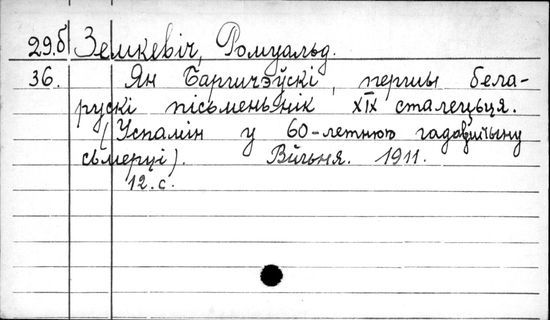 29.б Земкевіч, Ромуальд.
36. Ян Баршчэўскі, першы бела-
рускі пісьменьнік XIX сталецьця.
(Успамін у 60-летнюю гадаўшчыну
сьмерці). Вільня. 1911.
12.с.